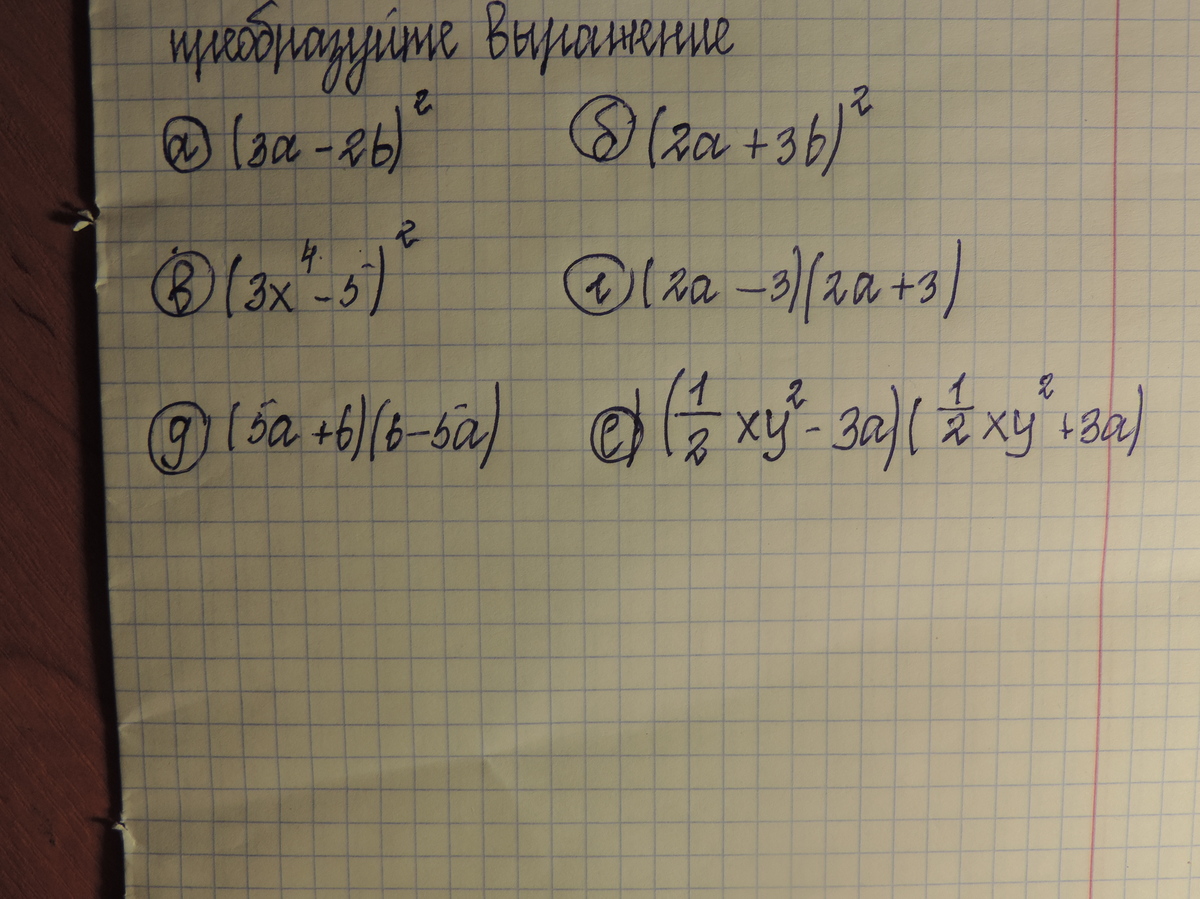 преобразуйте выражение
а) (3a - 2b)² б) (2a + 3b)²
в) (3x⁴ - 5)² г) (2a - 3)(2a + 3)
д) (5a + 6)(6 - 5a) е) (1/2 xy² - 3a)(1/2 xy² + 3a)